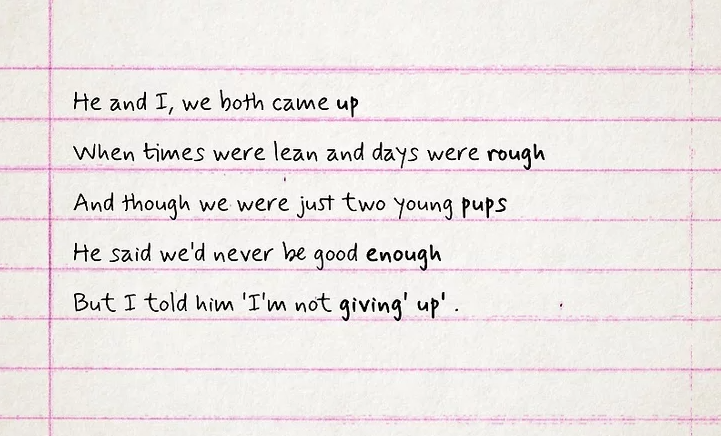 He and I, we both came up
When times were lean and days were rough
And though we were just two young pups
He said we'd never be good enough
But I told him 'I'm not giving' up' .